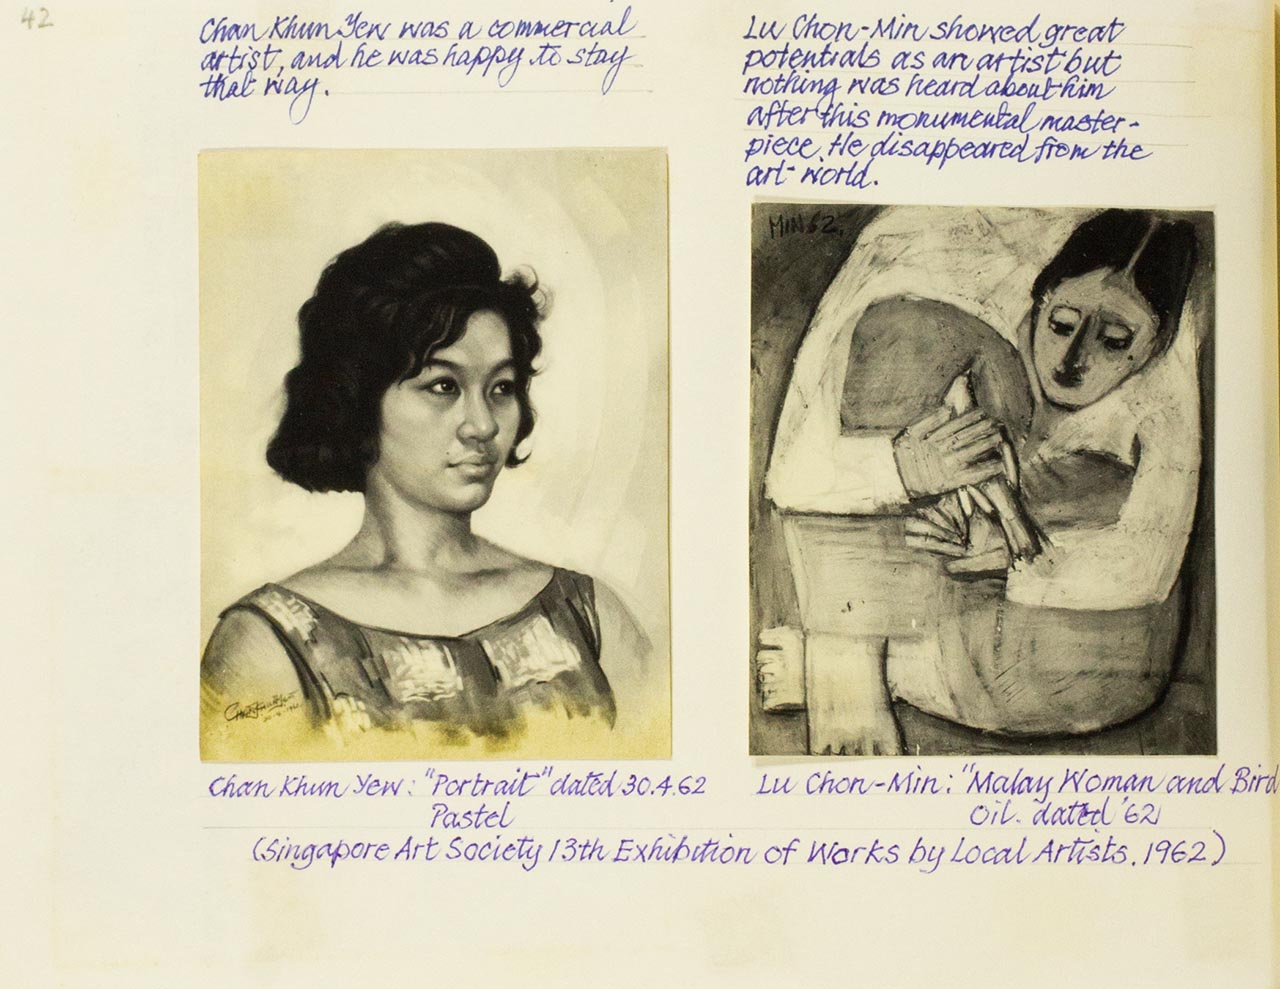 42
Chan Khun Yew was a commercial
artist, and he was happy to stay
that way.
Lu Chon-Min showed great
potentials as an artist but
nothing was heard about him
after this monumental master-
piece. He disappeared from the
art-world.
MIN 62.
Chan Khun Yew: "Portrait" dated 30.4.62
Pastel
Lu Chon-Min: "Malay Woman and Bird
Oil. dated '62
(Singapore Art Society 13th Exhibition of Works by Local Artists. 1962)